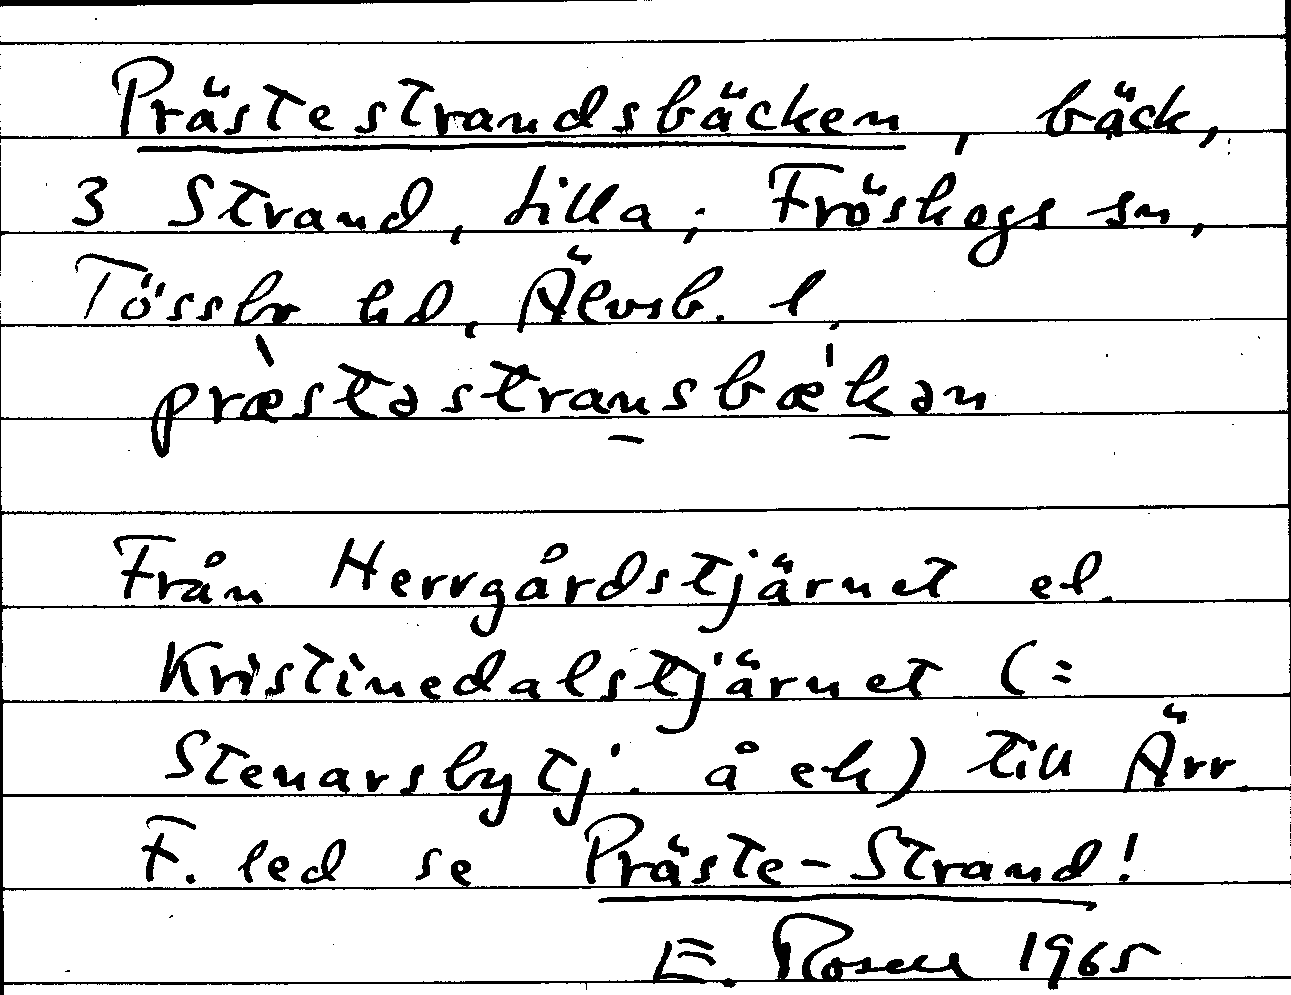 Prästestrandsbäcken, bäck,
3 Strand, lilla; Fröskogs sn,
Tössbo hd, Älvsb. l.
præ̀stəstransbæ'kən
Från Herrgårdstjärnet el.
Kristinedalstjärnet (=
Stenarsbytj. å ek) till Ärr
F. led se Präste-Strand!
E. Rosell 1965